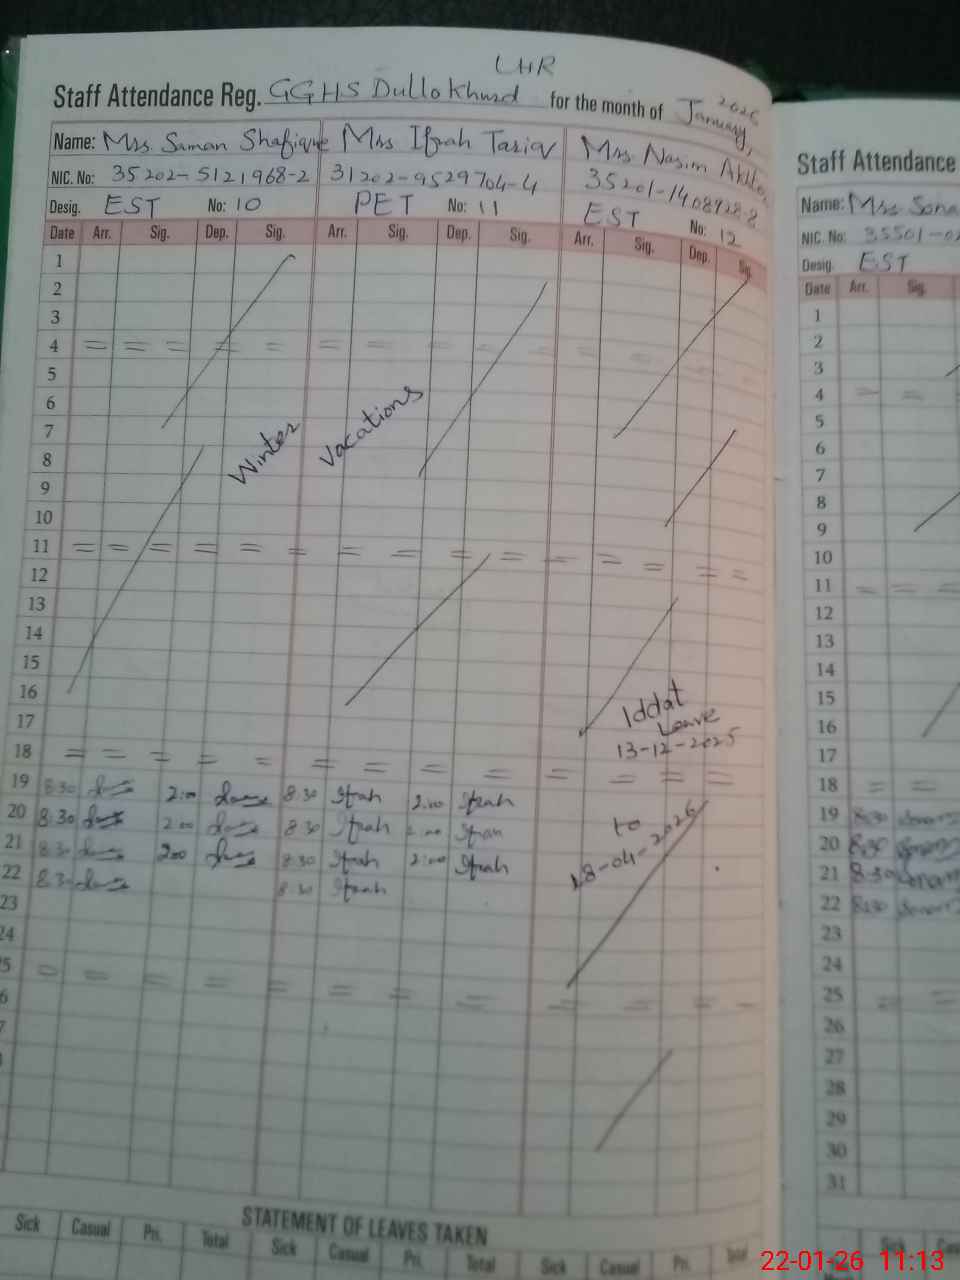 LHR
Staff Attendance Reg. GGHS Dullo Khurd for the month of January, 2026
Name: Mrs. Saman Shafique Mrs Ifrah Tariq Mrs. Nasim
NIC. No: 35202-5121968-2 31202-9529704-4 35201-1408928-8
Desig. EST No: 10 PET No: 11 EST No: 12
Date Arr. Sig. Dep. Sig. Arr. Sig. Dep. Sig. Arr. Sig. Dep. Sig.
1
2
3
4 = = = = = = = = = = = =
5
6
7
Winter Vacations
8
9
10
11 = = = = = = = = = = = = = = =
12
13
14
15
16
17
Iddat
Leave
13-12-2025
18 = = = = = = = = = = = =
19 8:30 2:00 8:30 Ifrah 2:00 Ifrah
20 8:30 2:00 8:30 Ifrah 2:00 Ifrah
21 8:30 2:00 8:30 Ifrah 2:00 Ifrah
22 8:30 8:30 Ifrah
to
18-04-2026
23
24
5 = = = = = = = = = = = =
6
7
STATEMENT OF LEAVES TAKEN
Sick Casual Pri. Total Sick Casual Pri. Total Sick Casual Pri. Total
Staff Attendance
Name: Mrs Sona
NIC. No: 35501-02
Desig. EST
Date Arr. Sig.
1
2
3
4 = =
5
6
7
8
9
10
11 = = =
12
13
14
15
16
17
18 = =
19 8:30
20 8:30
21 8:30
22 8:30
23
24
25 = =
26
27
28
29
30
31
Sick
22-01-26 11:13